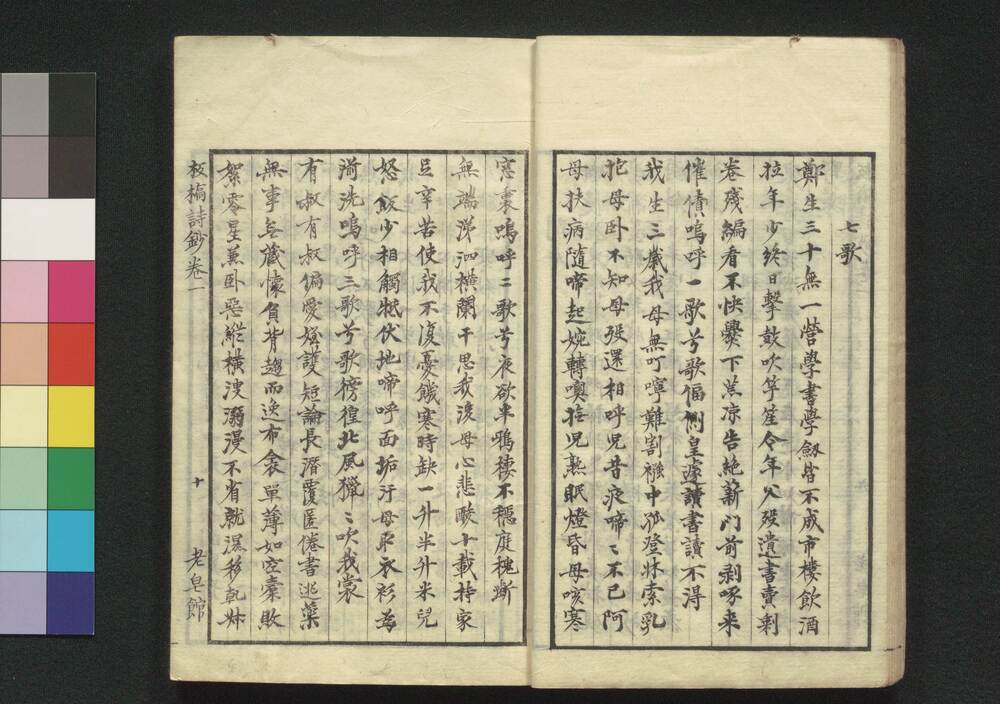 七歌
鄭生三十無一營學書學劒皆不成市樓飲酒
拉年少終日擊鼓吹竽笙今年父殁遺書賣剩
卷殘編看不快爨下荒凉告絶薪門前剥啄来
催債嗚呼一歌兮歌偪側皇遽讀書讀不得
我生三歲我母無叮嚀難割襁中孤登牀索乳
抱母卧不知母殁還相呼児昔夜啼〻不已阿
母扶病隨啼起婉轉噢撫児熟眠燈昏母咳寒
窓裏嗚呼二歌兮夜欲半鴉棲不穏庭槐斷
無端涕泗橫闌干思我後母心悲酸十載持家
足辛苦使我不復憂饑寒時缺一升半升米児
怒飯少相觸牴伏地啼呼面垢汙母取衣衫為
湔洗嗚呼三歌兮歌徬徨北風獵〻吹我裳
有叔有叔偏愛姪護短論長潛覆匿倦書逃藥
無事無藏懐負背趨而逸布衾單薄如空橐敗
絮零星兼卧惡縱橫溲溺漫不省就濕移乾妹
板橋詩鈔卷一　十　老皀館